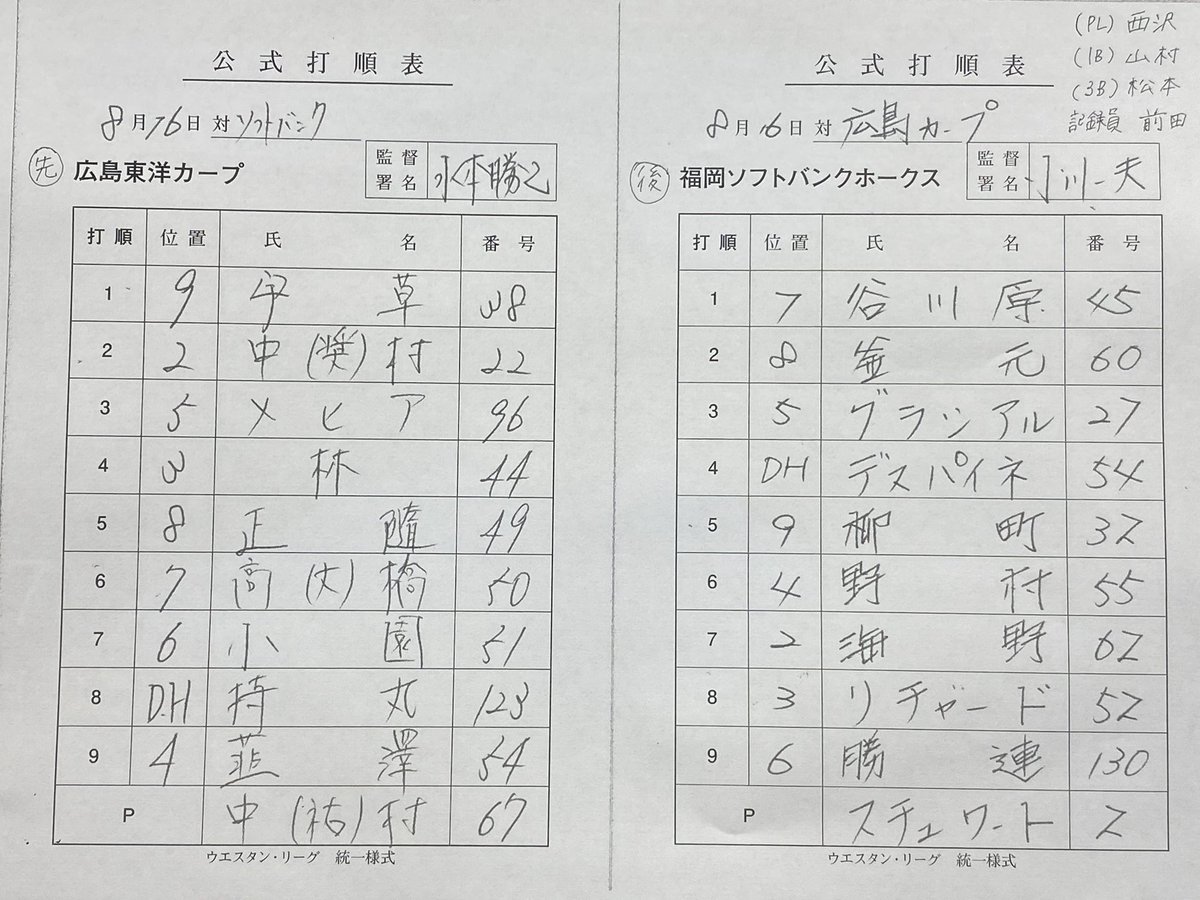 公式打順表
8月16日対ソフトバンク
先 広島東洋カープ 監督署名 水本勝己
打順 位置 氏名 番号
1 9 宇草 38
2 2 中(奨)村 22
3 5 メヒア 96
4 3 林 44
5 8 正隨 49
6 7 高(大)橋 50
7 6 小園 51
8 D.H 持丸 123
9 4 韮澤 54
P 中(祐)村 67
ウエスタン・リーグ 統一様式
(PL) 西沢
(1B) 山村
(3B) 松本
記録員 前田
公式打順表
8月16日対広島カープ
後 福岡ソフトバンクホークス 監督署名
打順 位置 氏名 番号
1 7 谷川原 45
2 8 釜元 60
3 5 グラシアル 27
4 DH デスパイネ 54
5 9 柳町 32
6 4 野村 55
7 2 海野 62
8 3 リチャード 52
9 6 勝連 130
P スチュワート 2
ウエスタン・リーグ 統一様式